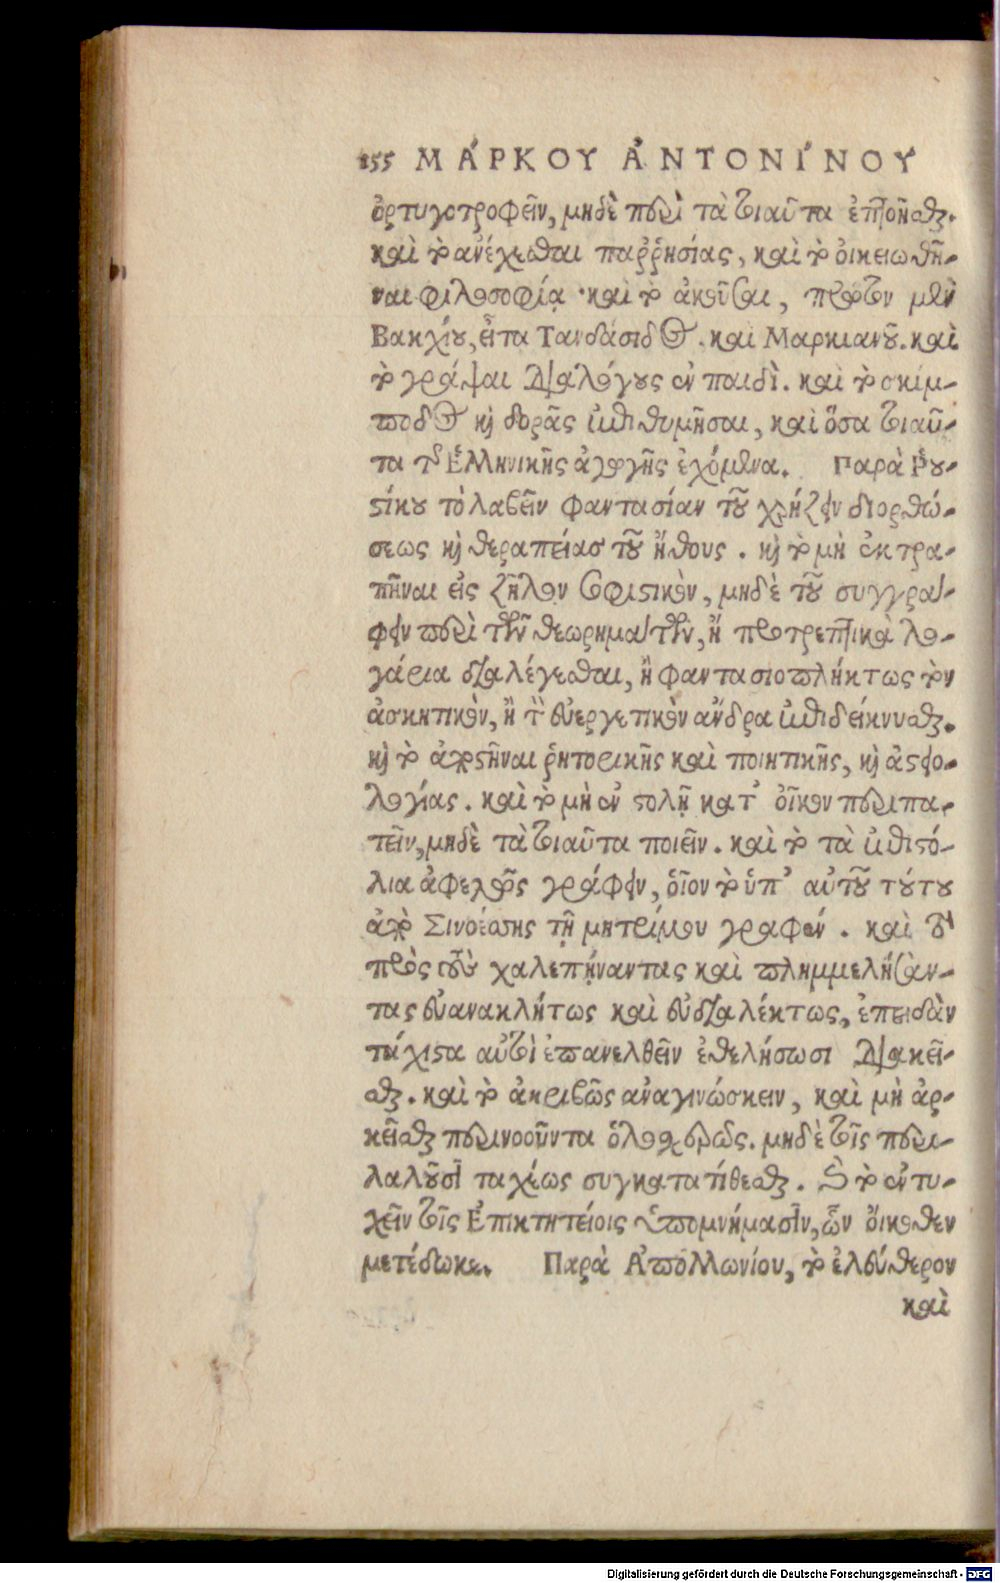 255 ΜΆΡΚΟΥ ἈΝΤΟΝΊΝΟΥ
ὀρτυγοτροφεῖν, μηδὲ περὶ τὰ τοιαῦτα ἐπτοῆσθαι.
καὶ τὸ ἀνέχεσθαι παῤῥησίας, καὶ τὸ οἰκειωθῆ-
ναι φιλοσοφίᾳ· καὶ τὸ ἀκοῦσαι, πρῶτον μὲν
Βακχίου, εἶτα Τανδάσιδος. καὶ Μαρκιανοῦ. καὶ
τὸ γράψαι διαλόγους ἐν παιδὶ. καὶ τὸ σκίμ-
ποδος καὶ δορᾶς ἐπιθυμῆσαι, καὶ ὅσα τοιαῦ-
τα τῆς Ἑλληνικῆς ἀγωγῆς ἐχόμενα. Παρὰ Ῥου-
στίκου τὸ λαβεῖν φαντασίαν τοῦ χρῄζειν διορθώ-
σεως καὶ θεραπείας τοῦ ἤθους. καὶ τὸ μὴ ἐκτρα-
πῆναι εἰς ζῆλον σοφιστικὸν, μηδὲ τοῦ συγγρά-
φειν περὶ τῶν θεωρημάτων, ἢ προτρεπτικὰ λο-
γάρια διαλέγεσθαι, ἢ φαντασιοπλήκτως τὸν
ἀσκητικὸν, ἢ τὸν εὐεργετικὸν ἄνδρα ἐπιδείκνυσθαι.
καὶ τὸ ἀποστῆναι ῥητορικῆς καὶ ποιητικῆς, καὶ ἀστειο-
λογίας. καὶ τὸ μὴ ἐν στολῇ κατ' οἶκον περιπα-
τεῖν, μηδὲ τὰ τοιαῦτα ποιεῖν. καὶ τὸ τὰ ἐπιστό-
λια ἀφελῶς γράφειν, οἷον τὸ ὑπ' αὐτοῦ τούτου
ἀπὸ Σινοέσσης τῇ μητρί μου γραφέν. καὶ τὸ
πρὸς τοὺς χαλεπήναντας καὶ πλημμελήσαν-
τας εὐανακλήτως καὶ εὐδιαλέκτως, ἐπειδὰν
τάχιστα αὐτοὶ ἐπανελθεῖν ἐθελήσωσι διακεῖ-
σθαι. καὶ τὸ ἀκριβῶς ἀναγινώσκειν, καὶ μὴ ἀρ-
κεῖσθαι περινοοῦντα ὁλοσχερῶς. μηδὲ τοῖς περι-
λαλοῦσι ταχέως συγκατατίθεσθαι. Καὶ τὸ ἐντυ-
χεῖν τοῖς Ἐπικτητείοις ὑπομνήμασιν, ὧν οἴκοθεν
μετέδωκε. Παρὰ Ἀπολλωνίου, τὸ ἐλεύθερον
καὶ
Digitalisierung gefördert durch die Deutsche Forschungsgemeinschaft - DFG